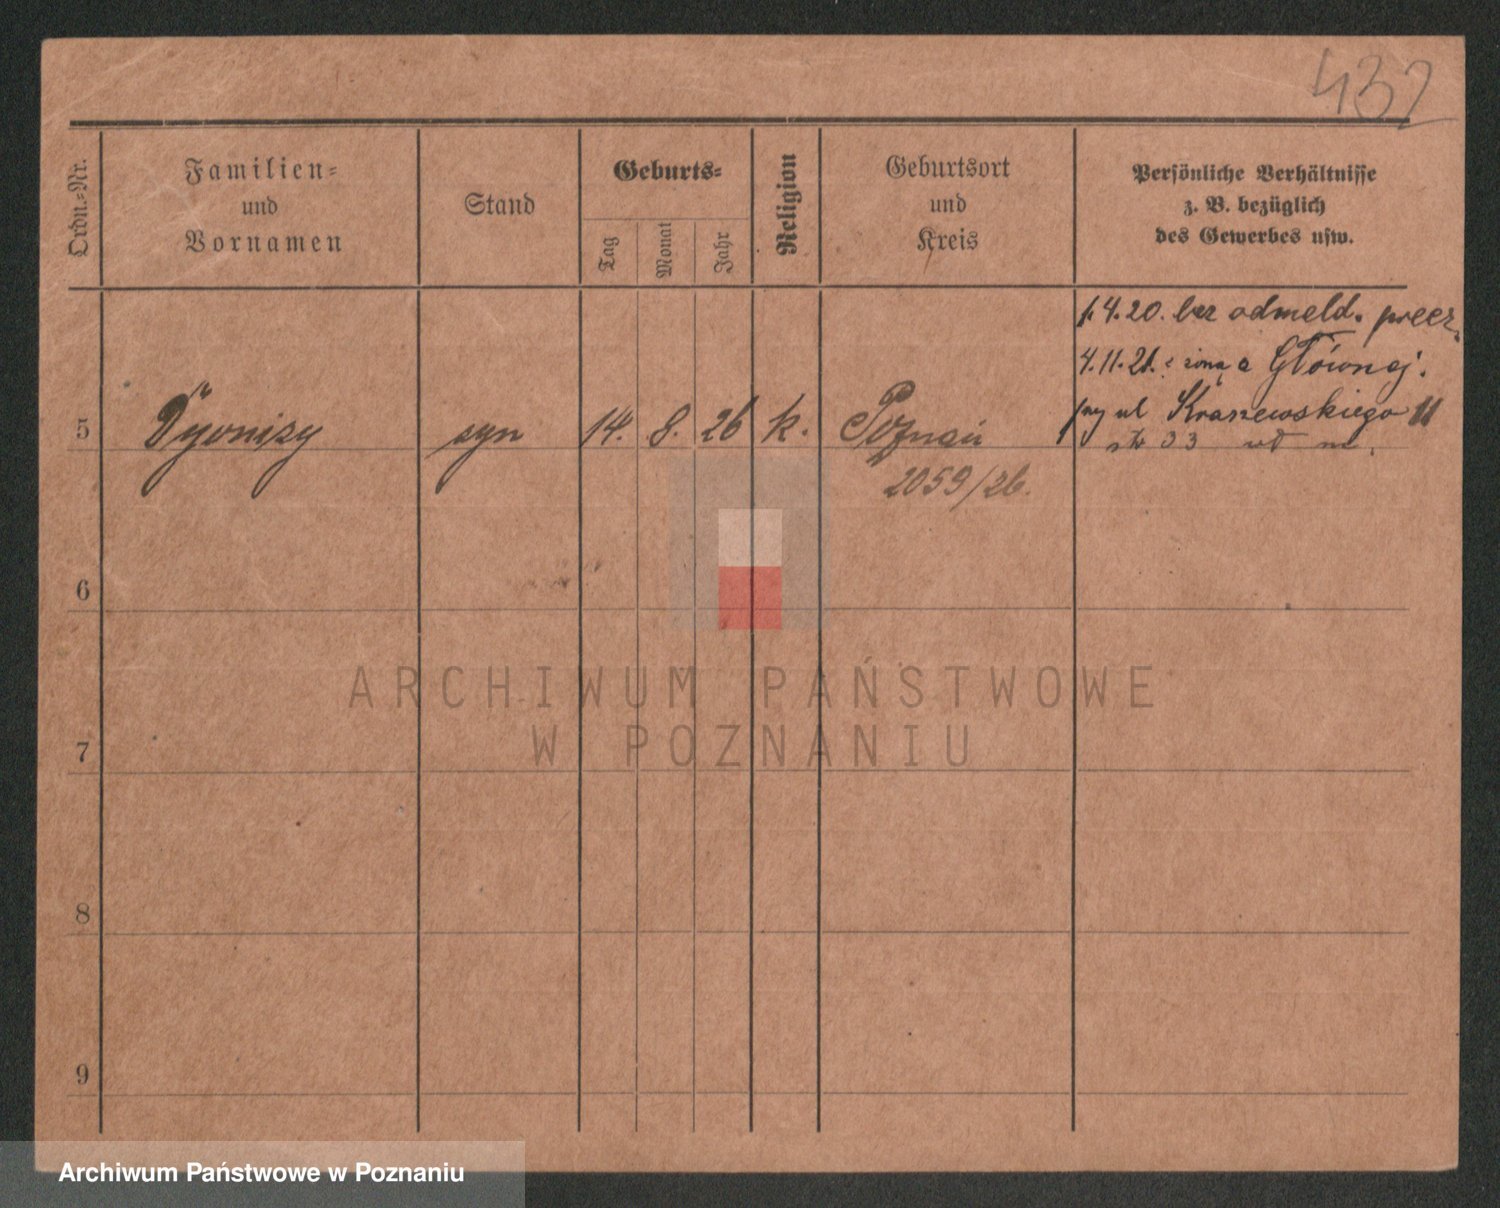 432
Ordn.-Nr.
Familien-
und
Vornamen
Stand
Geburts-
Tag
Monat
Jahr
Religion
Geburtsort
und
Kreis
Persönliche Verhältnisse
z. B. bezüglich
des Gewerbes usw.
1.4.20. bez odmeld.
4.11.21. z żoną a Głównej.
przy ul Kraszewskiego 11
5 Dyonizy syn 14. 8. 26 k. Poznań
33
2059/26.
6
7
8
9
ARCHIWUM PAŃSTWOWE
W POZNANIU
Archiwum Państwowe w Poznaniu